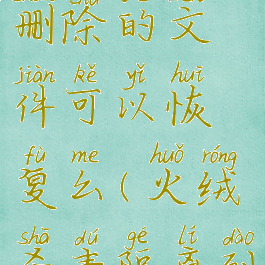 删除的文
jiàn kě yǐ huī
件可以恢
fù me huǒ róng
复么(火绒
shā dú gé lí dào
杀毒隔离到